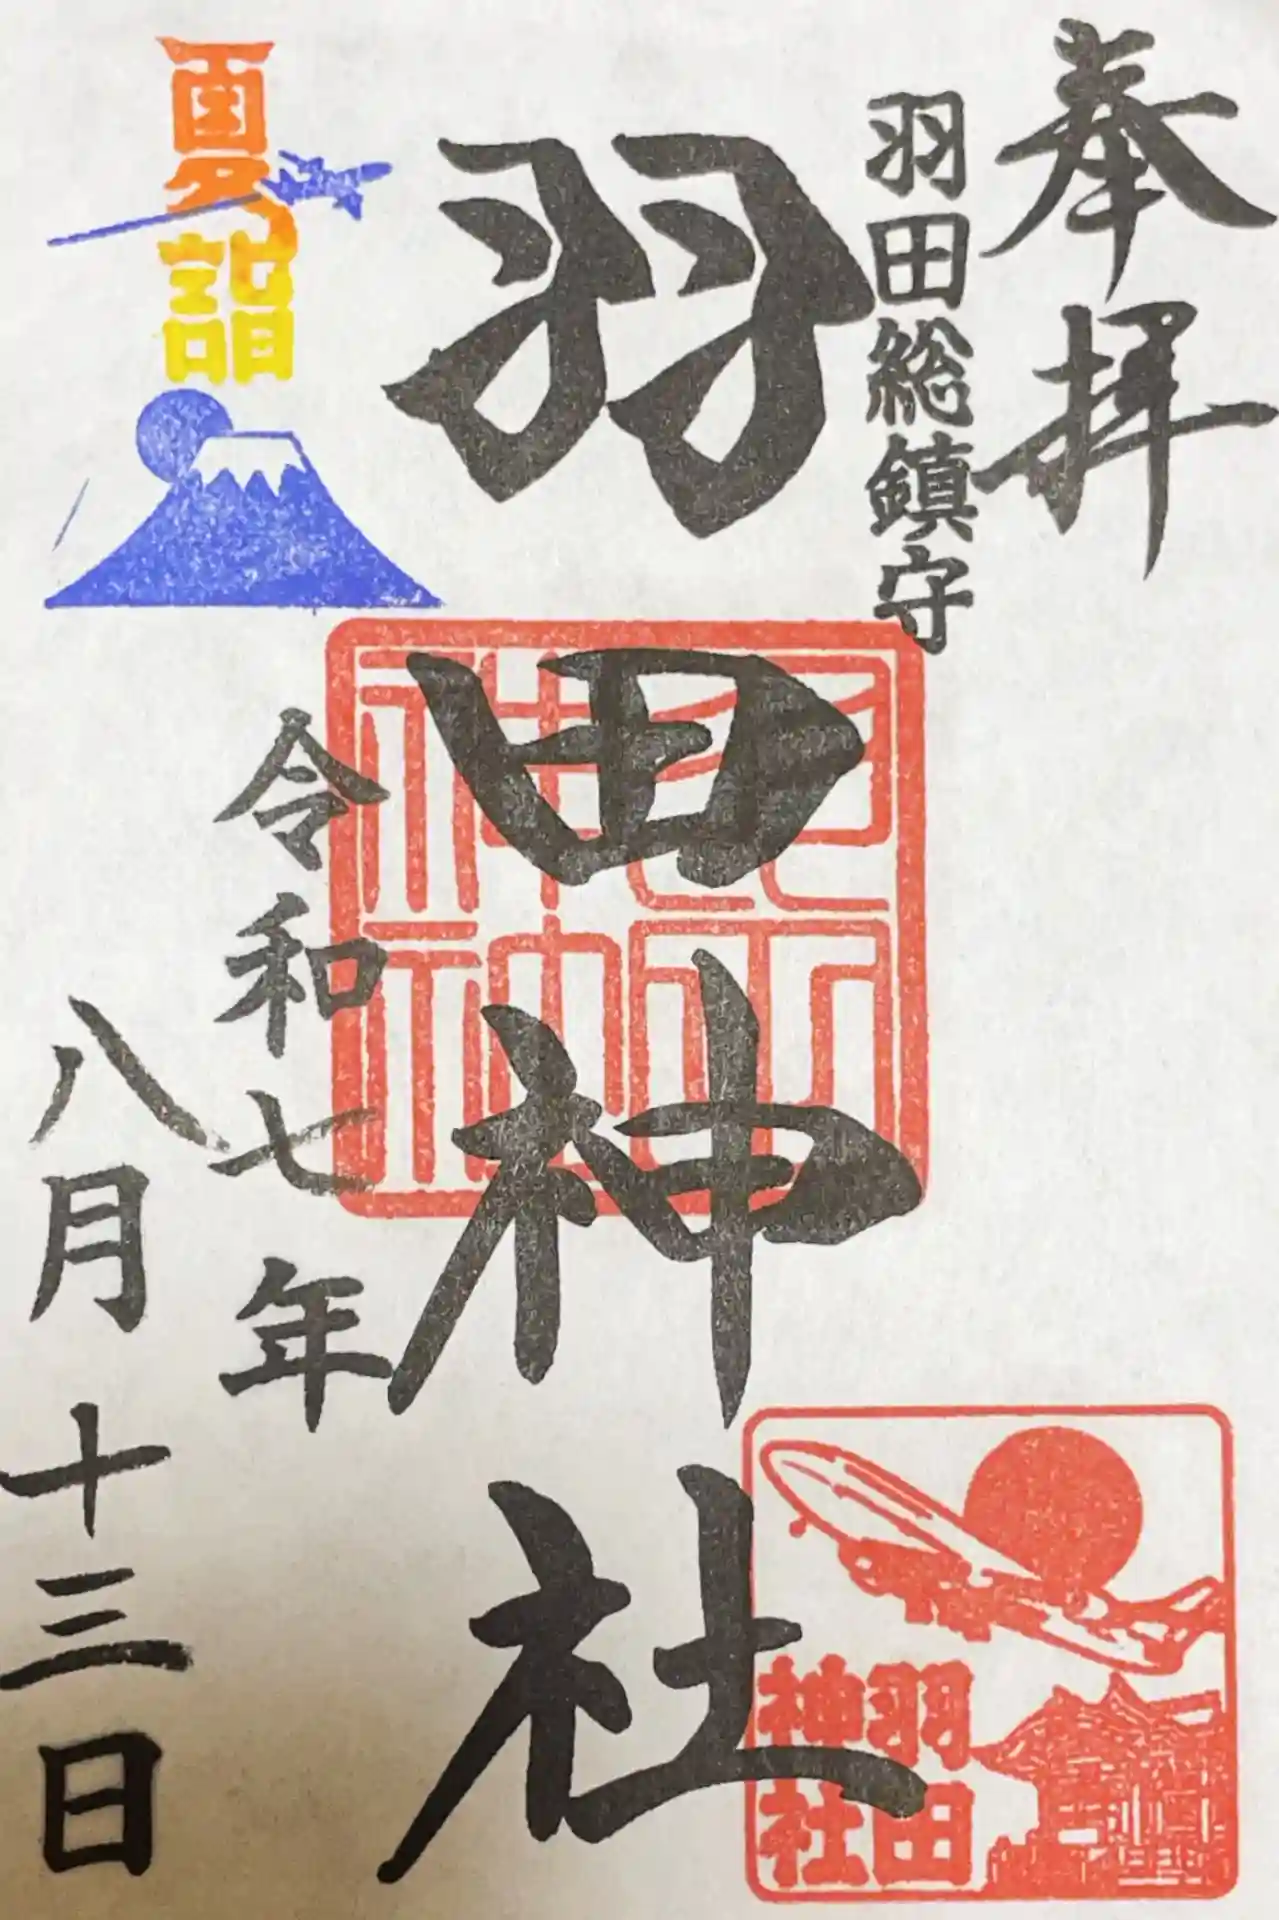 奉拝
羽田総鎮守
羽田神社
夏詣
令和七年
八月十三日
羽田
神社